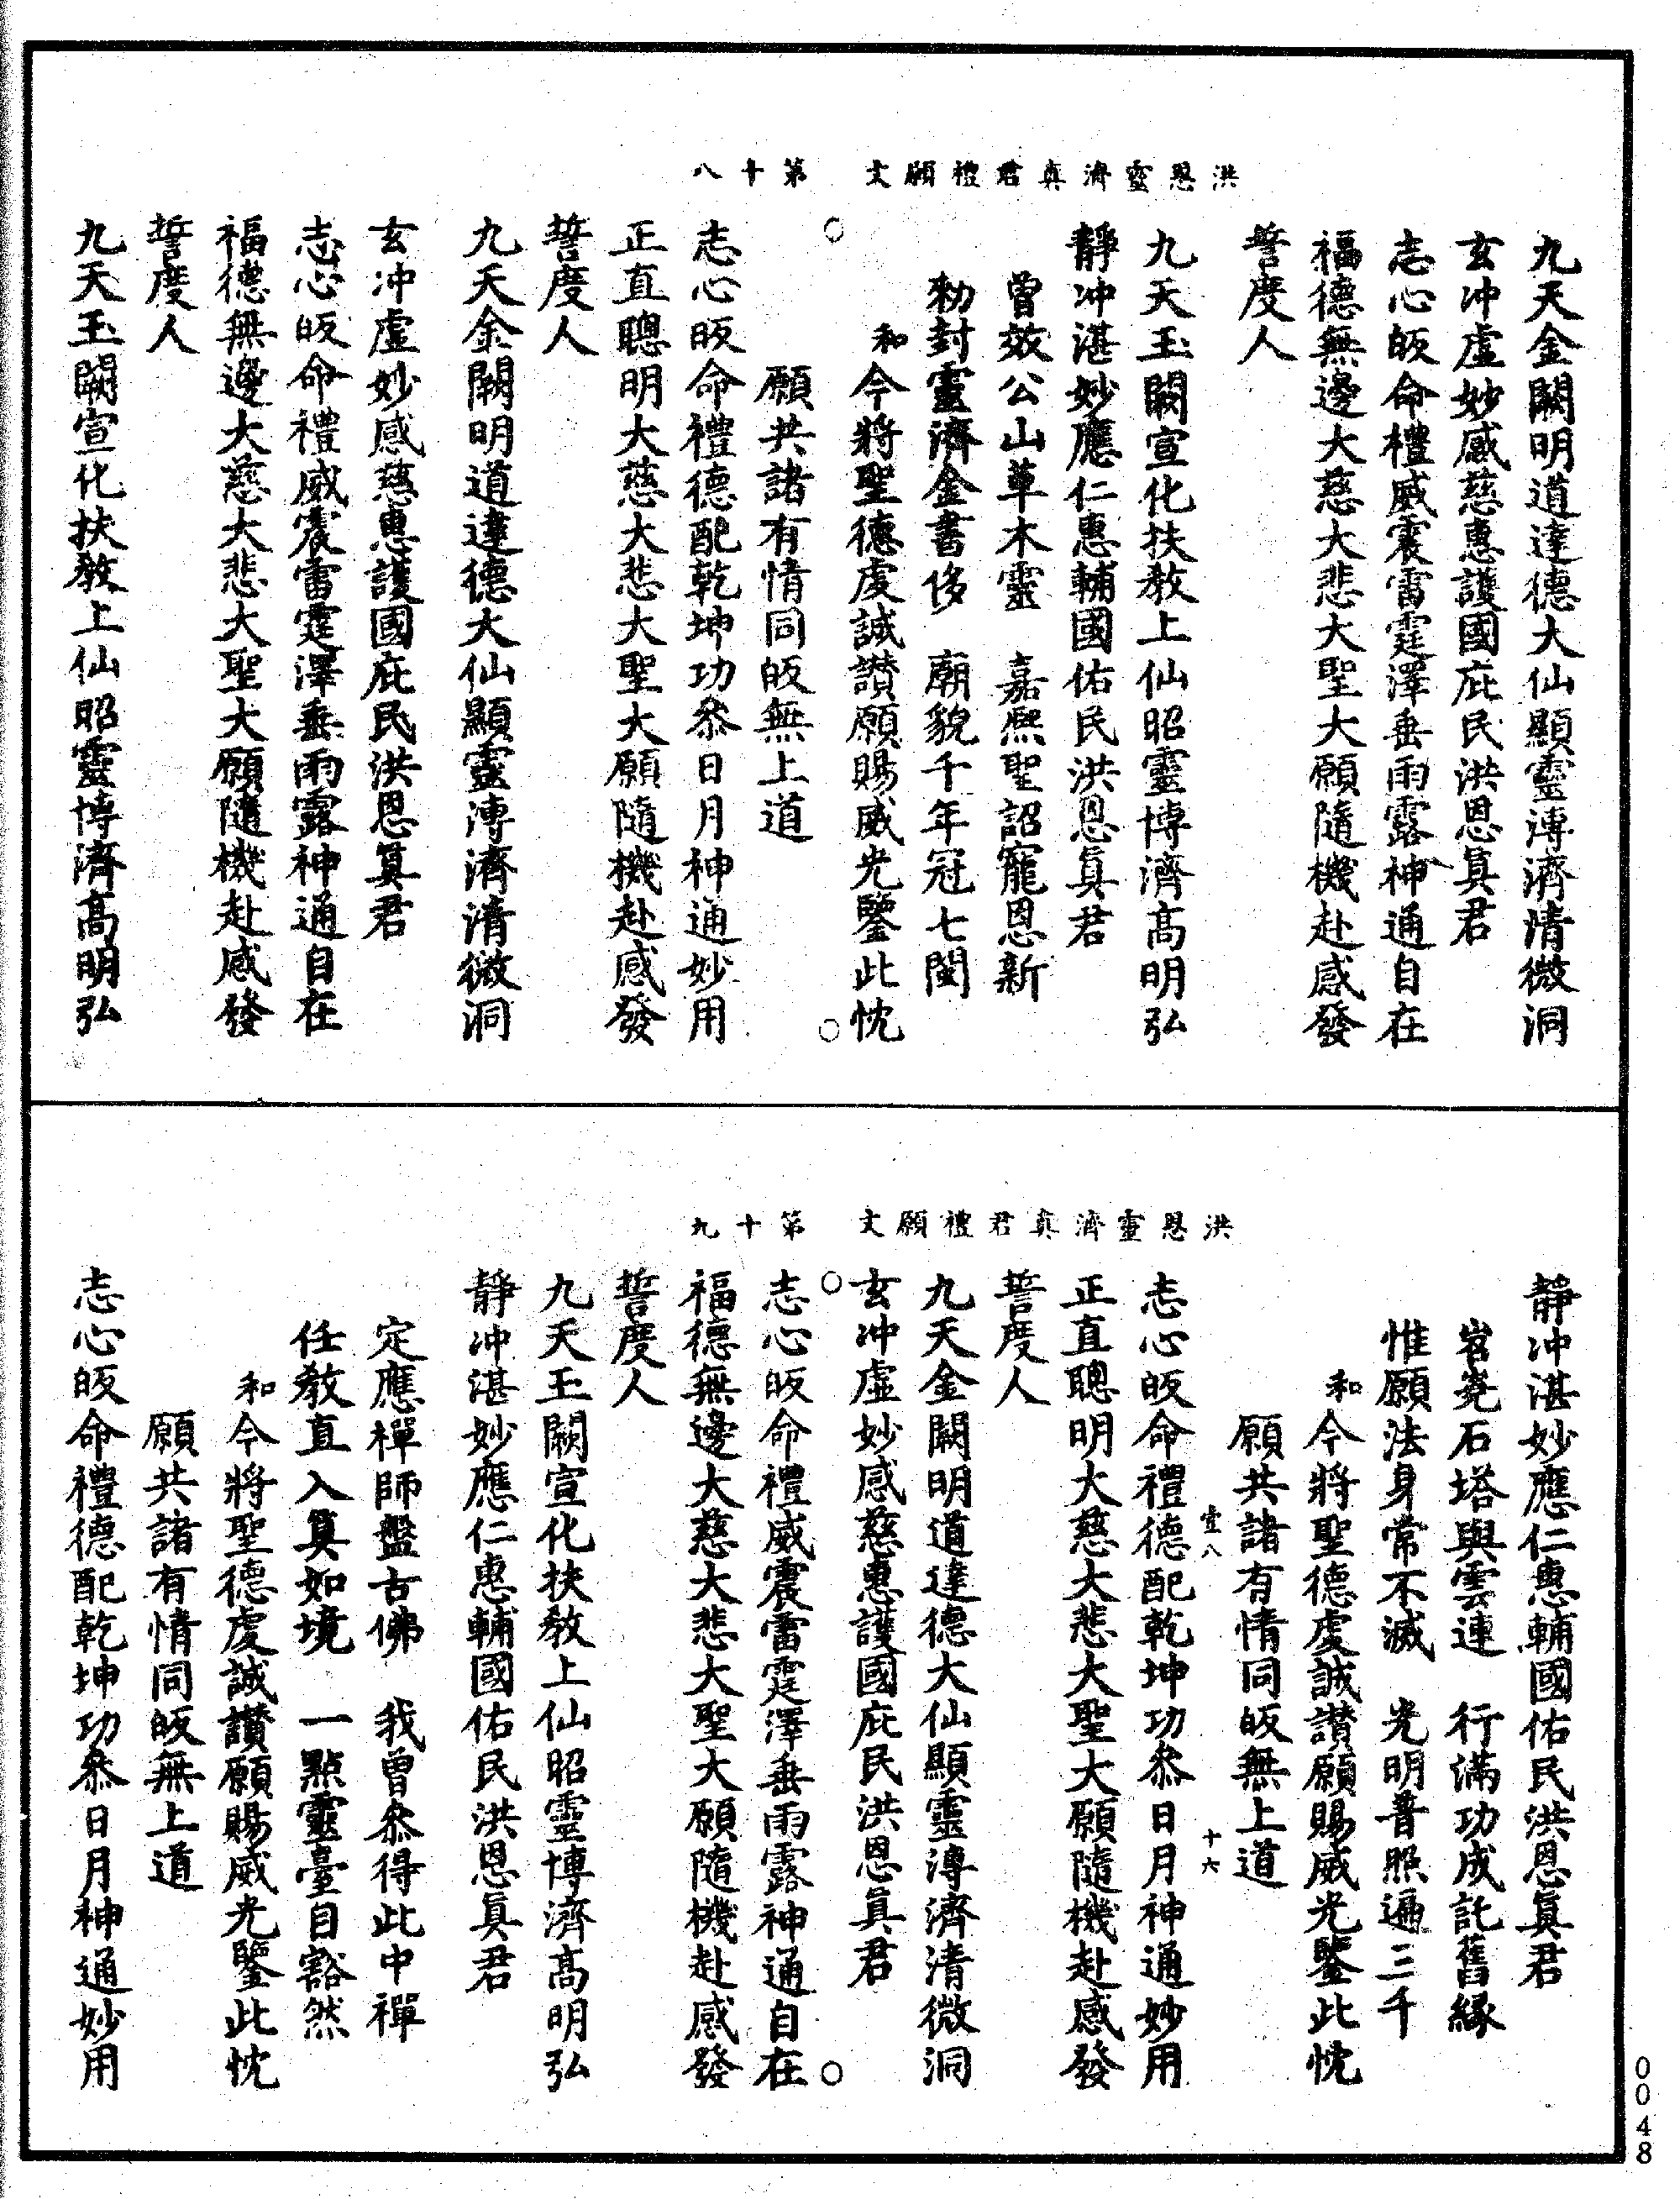 洪恩靈濟真君禮願文　第十八
九天金闕明道達德大仙顯靈溥濟清微洞
玄冲虛妙感慈惠護國庇民洪恩真君
志心皈命禮威震雷霆澤垂雨露神通自在
福德無邊大慈大悲大聖大願隨機赴感發
誓度人
九天玉闕宣化扶教上仙昭靈博濟高明弘
靜冲湛妙應仁惠輔國佑民洪恩真君
曾效公山草木靈　嘉熈聖詔寵恩新
勑封靈濟金書侈　廟貌千年冠七閩
和今將聖德虔誠讃願賜威光鑒此忱
願共諸有情同皈無上道
志心皈命禮德配乾坤功叅日月神通妙用
正直聰明大慈大悲大聖大願隨機赴感發
誓度人
九天金闕明道達德大仙顯靈溥濟清微洞
玄冲虛妙感慈惠護國庇民洪恩真君
志心皈命禮威震雷霆澤垂雨露神通自在
福德無邊大慈大悲大聖大願隨機赴感發
誓度人
九天玉闕宣化扶教上仙昭靈博濟高明弘
洪恩靈濟真君禮願文　第十九
靜冲湛妙應仁惠輔國佑民洪恩真君
岧堯石塔與雲連　行滿功成託舊緣
惟願法身常不滅　光明普照遍三千
和今將聖德虔誠讃願賜威光鑒此忱
願共諸有情同皈無上道
壹八　十六
志心皈命禮德配乾坤功叅日月神通妙用
正直聰明大慈大悲大聖大願隨機赴感發
誓度人
九天金闕明道達德大仙顯靈溥濟清微洞
玄冲虛妙感慈惠護國庇民洪恩真君
志心皈命禮威震雷霆澤垂雨露神通自在
福德無邊大慈大悲大聖大願隨機赴感發
誓度人
九天玉闕宣化扶教上仙昭靈博濟高明弘
靜冲湛妙應仁惠輔國佑民洪恩真君
定應禪師盤古佛　我曾叅得此中禪
任教直入真如境　一點靈臺自豁然
和今將聖德虔誠讃願賜威光鑒此忱
願共諸有情同皈無上道
志心皈命禮德配乾坤功叅日月神通妙用
0048